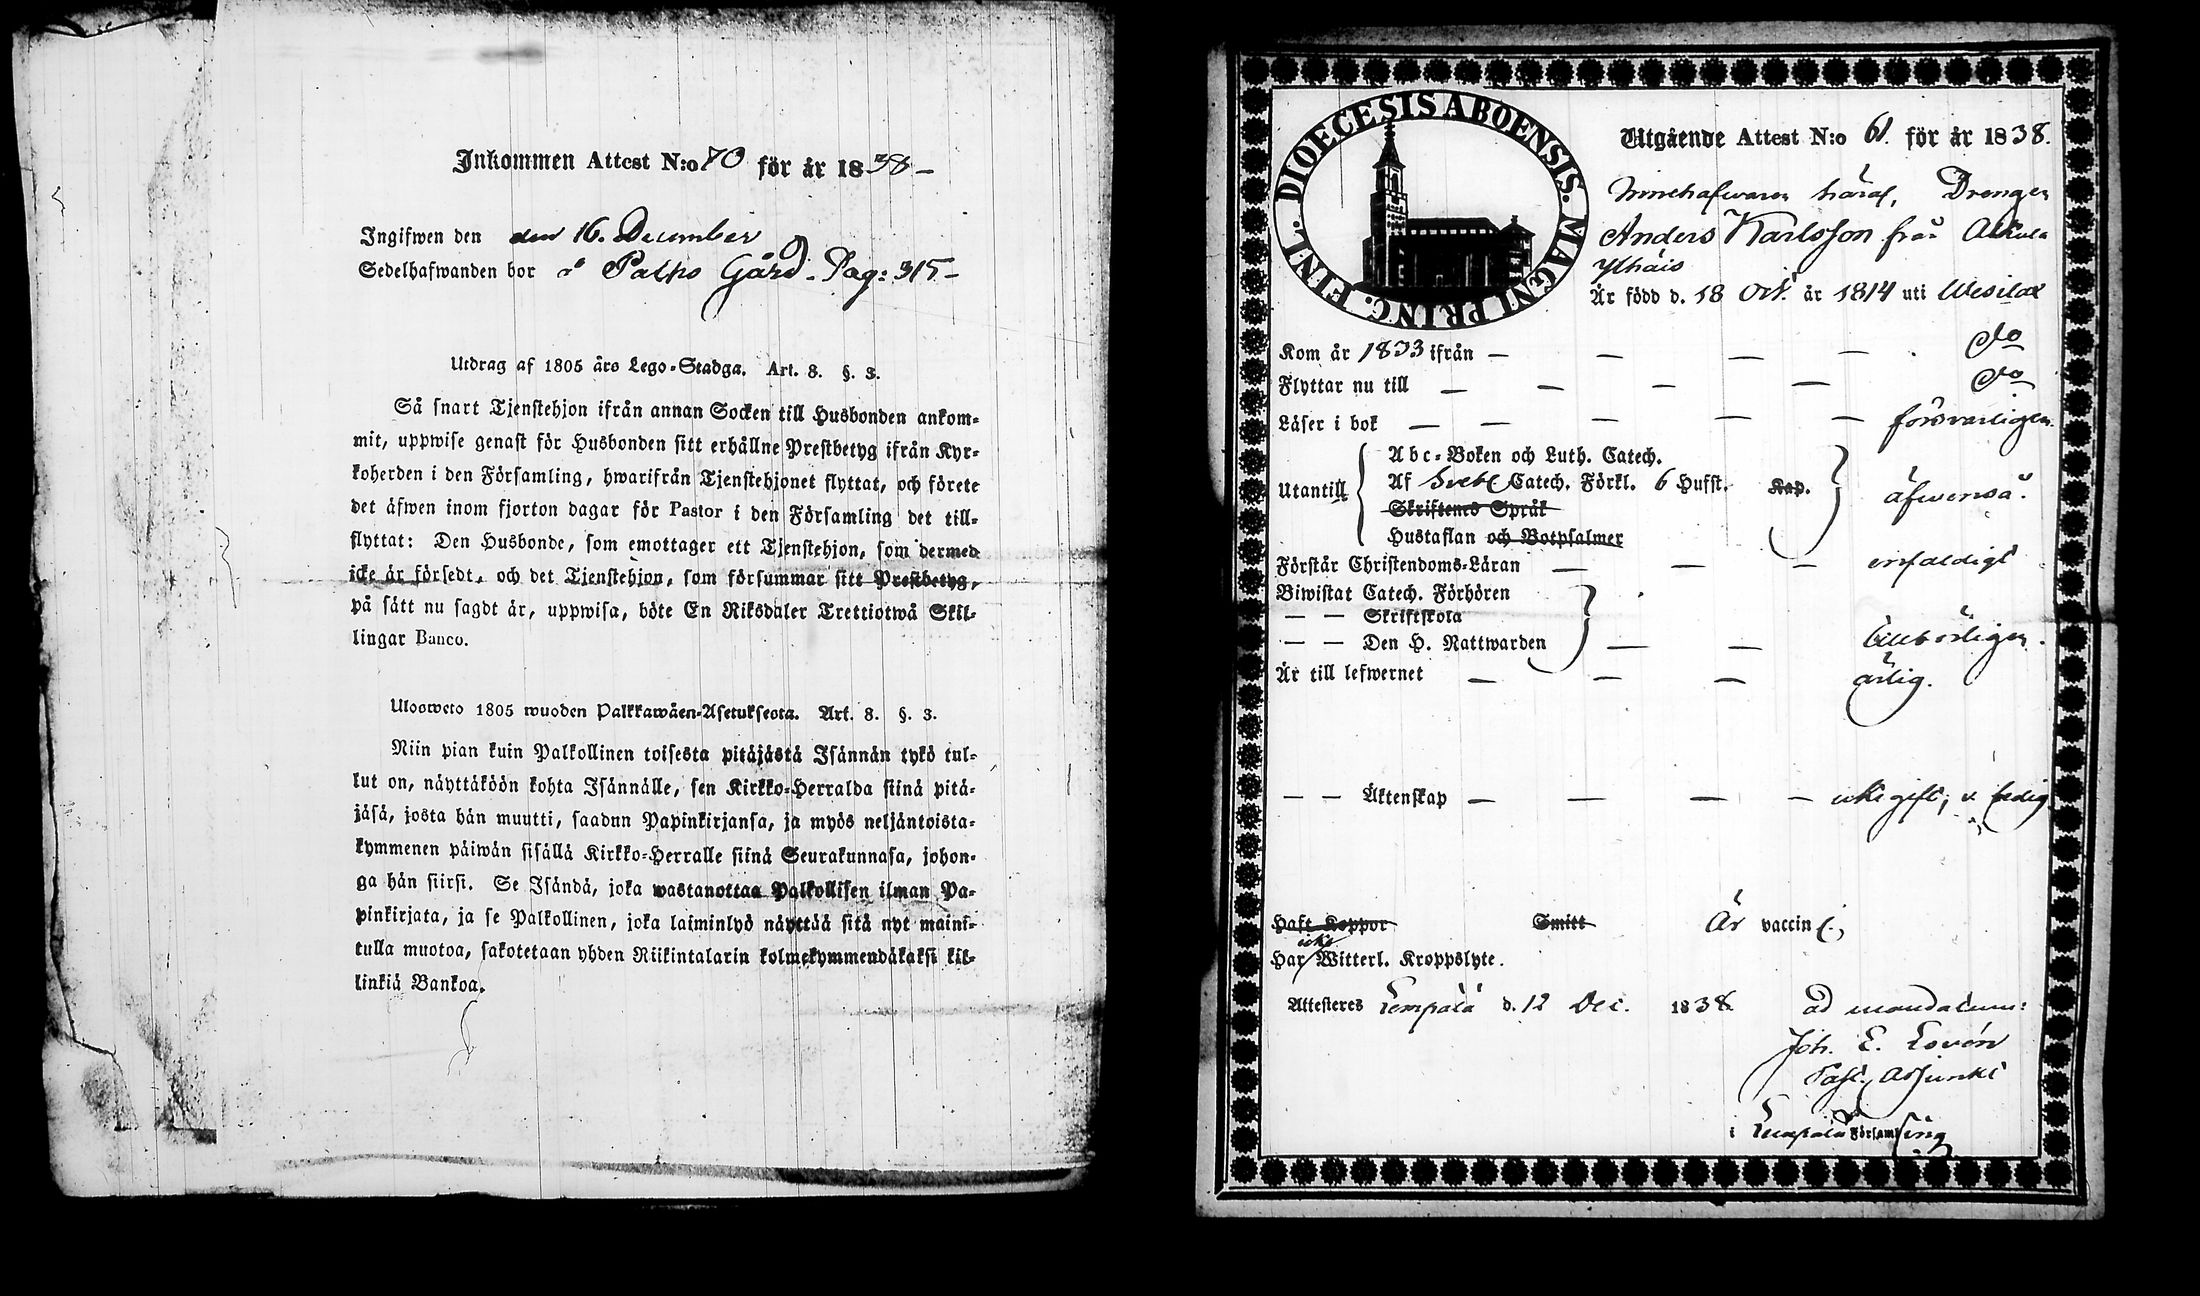 Inkommen Attest N:o 70 för år 1838 –
Ingifwen den den 16. December
Sedelhafwanden bor å Palho Gård. Pag: 315 –
Utdrag af 1805 års Lego-Stadga. Art. 8. §. 3.
Så snart Tjenstehjon ifrån annan Socken till Husbonden ankom-
mit, uppwise genast för Husbonden sitt erhållne Prestbetyg ifrån Kyr-
koherden i den Församling, hwarifrån Tjenstehjonet flyttat, och förete
det äfwen inom fjorton dagar för Pastor i den Församling det till-
flyttat: Den Husbonde, som emottager ett Tjenstehjon, som dermed
icke är försedt, och det Tjenstehjon, som försummar sitt Prestbetyg,
på sätt nu sagdt är, uppwisa, böte En Riksdaler Trettiotwå Skil-
lingar Banco.
Ulosweto 1805 wuoden Palkkawäen-Asetuksesta. Art. 8. §. 3.
Niin pian kuin Palkollinen toisesta pitäjästä Isännän tykö tul-
lut on, näyttäköön kohta Isännälle, sen Kirkko-Herralda siinä pitä-
jäsä, josta hän muutti, saadun Papinkirjansa, ja myös neljäntoista-
kymmenen päiwän sisällä Kirkko-Herralle siinä Seurakunnasa, johon-
ga hän siirsi. Se Isändä, joka wastanottaa Palkollisen ilman Pa-
pinkirjata, ja se Palkollinen, joka laiminlyö näyttää sitä nyt maini-
tulla muotoa, sakotetaan yhden Riikintalarin kolmekymmendäkaksi kil-
linkiä Bankoa.
DIOECESIS ABOENSIS. MAGNI PRINC. FINL.
Utgående Attest N:o 61. för år 1838.
Innehafwaren häraf, Drengen
Anders Karlsson från
Är född d. 18 Oct. år 1814 uti Wesilax
Kom år 1833 ifrån — — — — do
Flyttar nu till — — — — do
Läser i bok — — — — — försvarligen.
Utantill Abc-Boken och Luth. Catech.
Af Catech. Förkl. 6 Hufst. Kap. äfwenså.
Skriftenes Språk
Hustaflan och Botpsalmer
Förstår Christendoms-Läran — — — enfaldigt
Biwistat Catech. Förhören
— — Skriftskola
— — Den H. Nattwarden — — tillbörligen.
Är till lefwernet — — — ärlig.
— — Äktenskap — — — — icke gift, o. ledig
Haft Koppor Smitt Är vaccin.
icke
Har Witterl. Kroppslyte.
Attesteres Lempälä d. 12 Dec. 1838 ad mandatum:
Joh. E. Lovén
Past. Adjunkt
i Lempälä Församling